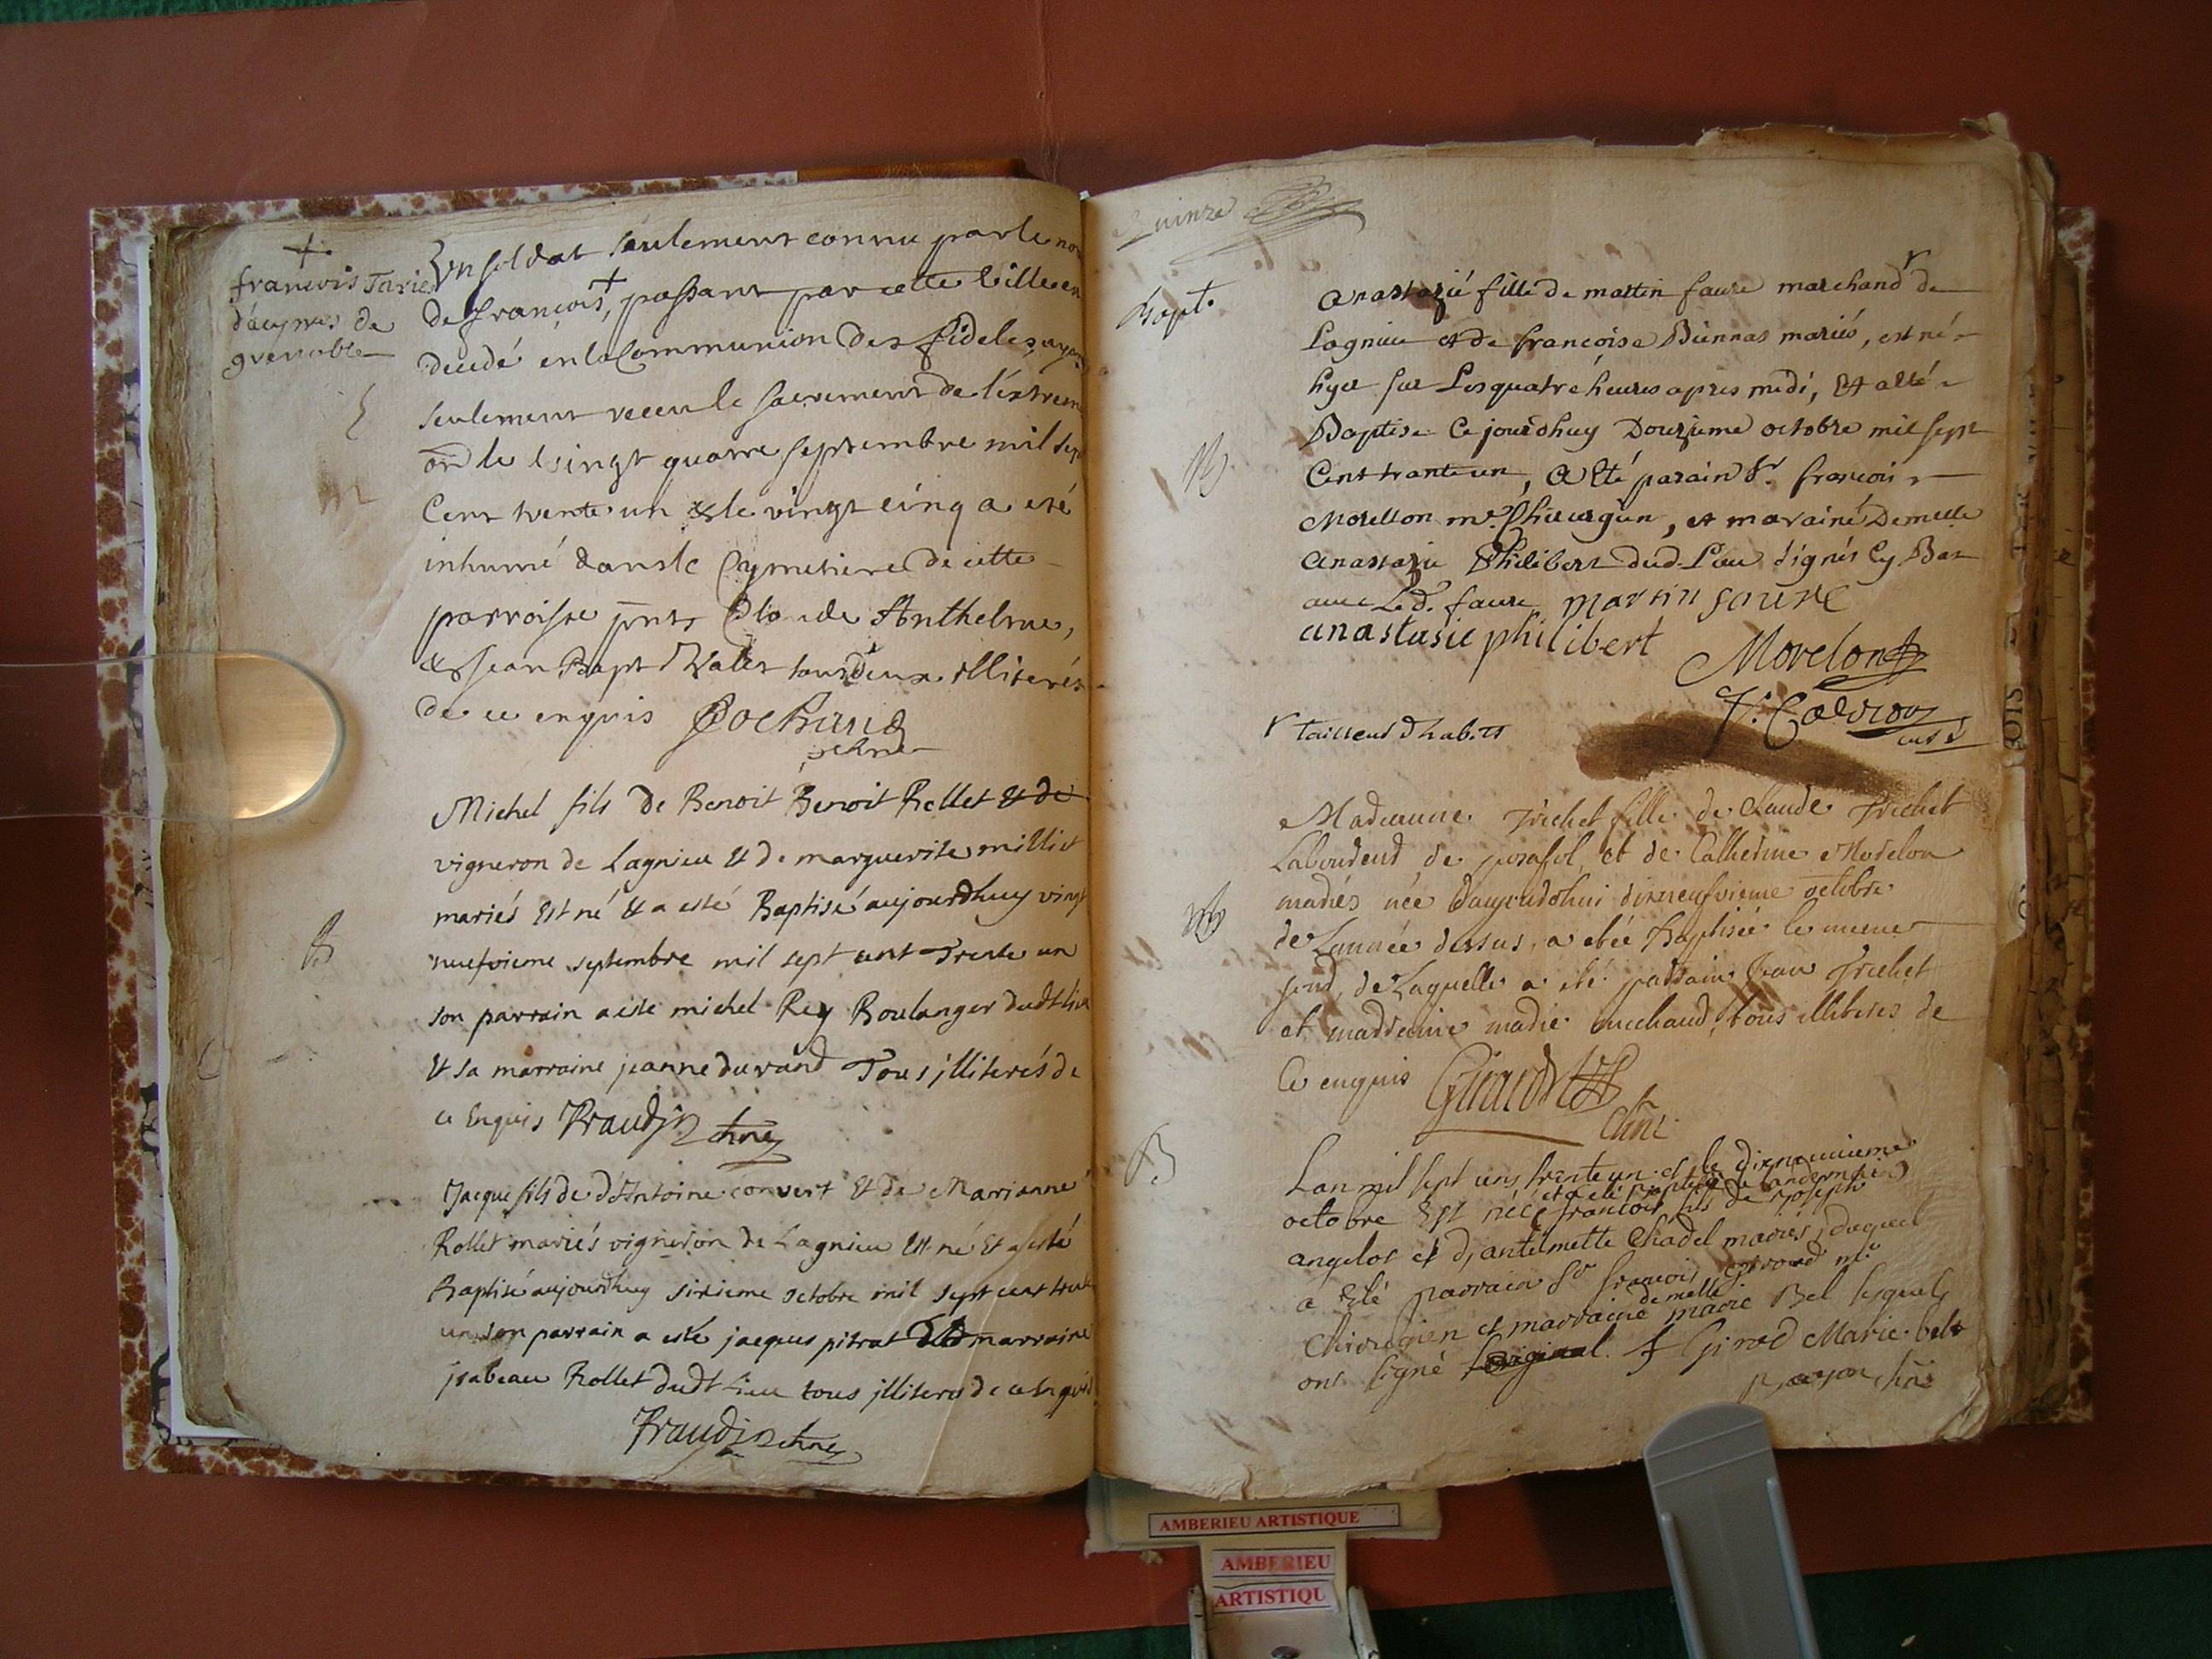 +
françois Tarie
d'aupres de
grenoble
Un soldat seulement connu par le nom
de françois +, passant par cette ville est
decedé en la Communion des fideles, ayant
seulement receu le sacrement de l'extreme
on le vingt quatre septembre mil sept
Cent trente un & le vingt cinq a esté
inhumé dans le Cymetiere de cette
parroisse pnts Claude Anthelme,
& Jean Bapt Valet tous deux illiterés
de ce enquis Cochand
vchre
Michel fils de Benoit Benoit Rollet & de
vigneron de Lagnieu & de marguerite milliet
mariés Est né & a esté Baptisé aujourdhuy vingt
neufvieme septembre mil sept cent Trente un
B
son parrain a esté michel Rey Boulanger dudt lieu
& sa marraine jeanne durand Tous jlliterés de
ce Enquis Praudin chre
Jacque fils de d'Antoine convert & de Marianne
Rollet mariés vigneron de Lagnieu Est né Et a esté
Baptisé aujourdhuy sixieme octobre mil sept cent trente
un son parrain a esté jacques pitrat & marraine
jsabeau Rollet dudt Lieu tous jlliteres de ce Enquis
Praudin chre
Quinze
Bapt.
anastazié fille de martin faure marchand r de
Lagnieu et de francoise Biennas mariés, est né
hyer sur Les quatre heures apres midi, Et a esté
Baptise Ce jourdhuy Douzieme octobre mil sept
Cent trante un, a Eté parain Sr. francois
B
Morellon me. Chirurgien, et maraine Demelle
anastazie Philibert dud. Lieu signés Cy Bas
avec Led. faure martin faure
anastasie philibert
Morelon
r tailleur dhabits
curé
Madeanne Trichet fille de Claude Trichet
Laboureur de posafol et de Catherine Morelon
mariés née daujourdhui dixneufvieme octobre
de Lannée dessus, a etée Baptisée le meme
jour, de Laquelle a été parrain Jean Trichet
et marraine marie michaud, tous illiteres de
Ce enquis Girard
chre
B
Lan mil sept cens trente un et le dixneuvieme
et a eté baptisé le landemain
octobre Est néé francois fils de joseph
angelot et d'antelmette Chadel mariés, duquel
a Eté parrain Sr francois girord me
demelle
Chirurgien et marraine marie Bel lesquels
ont signé loriginal. f Girod Marie bel